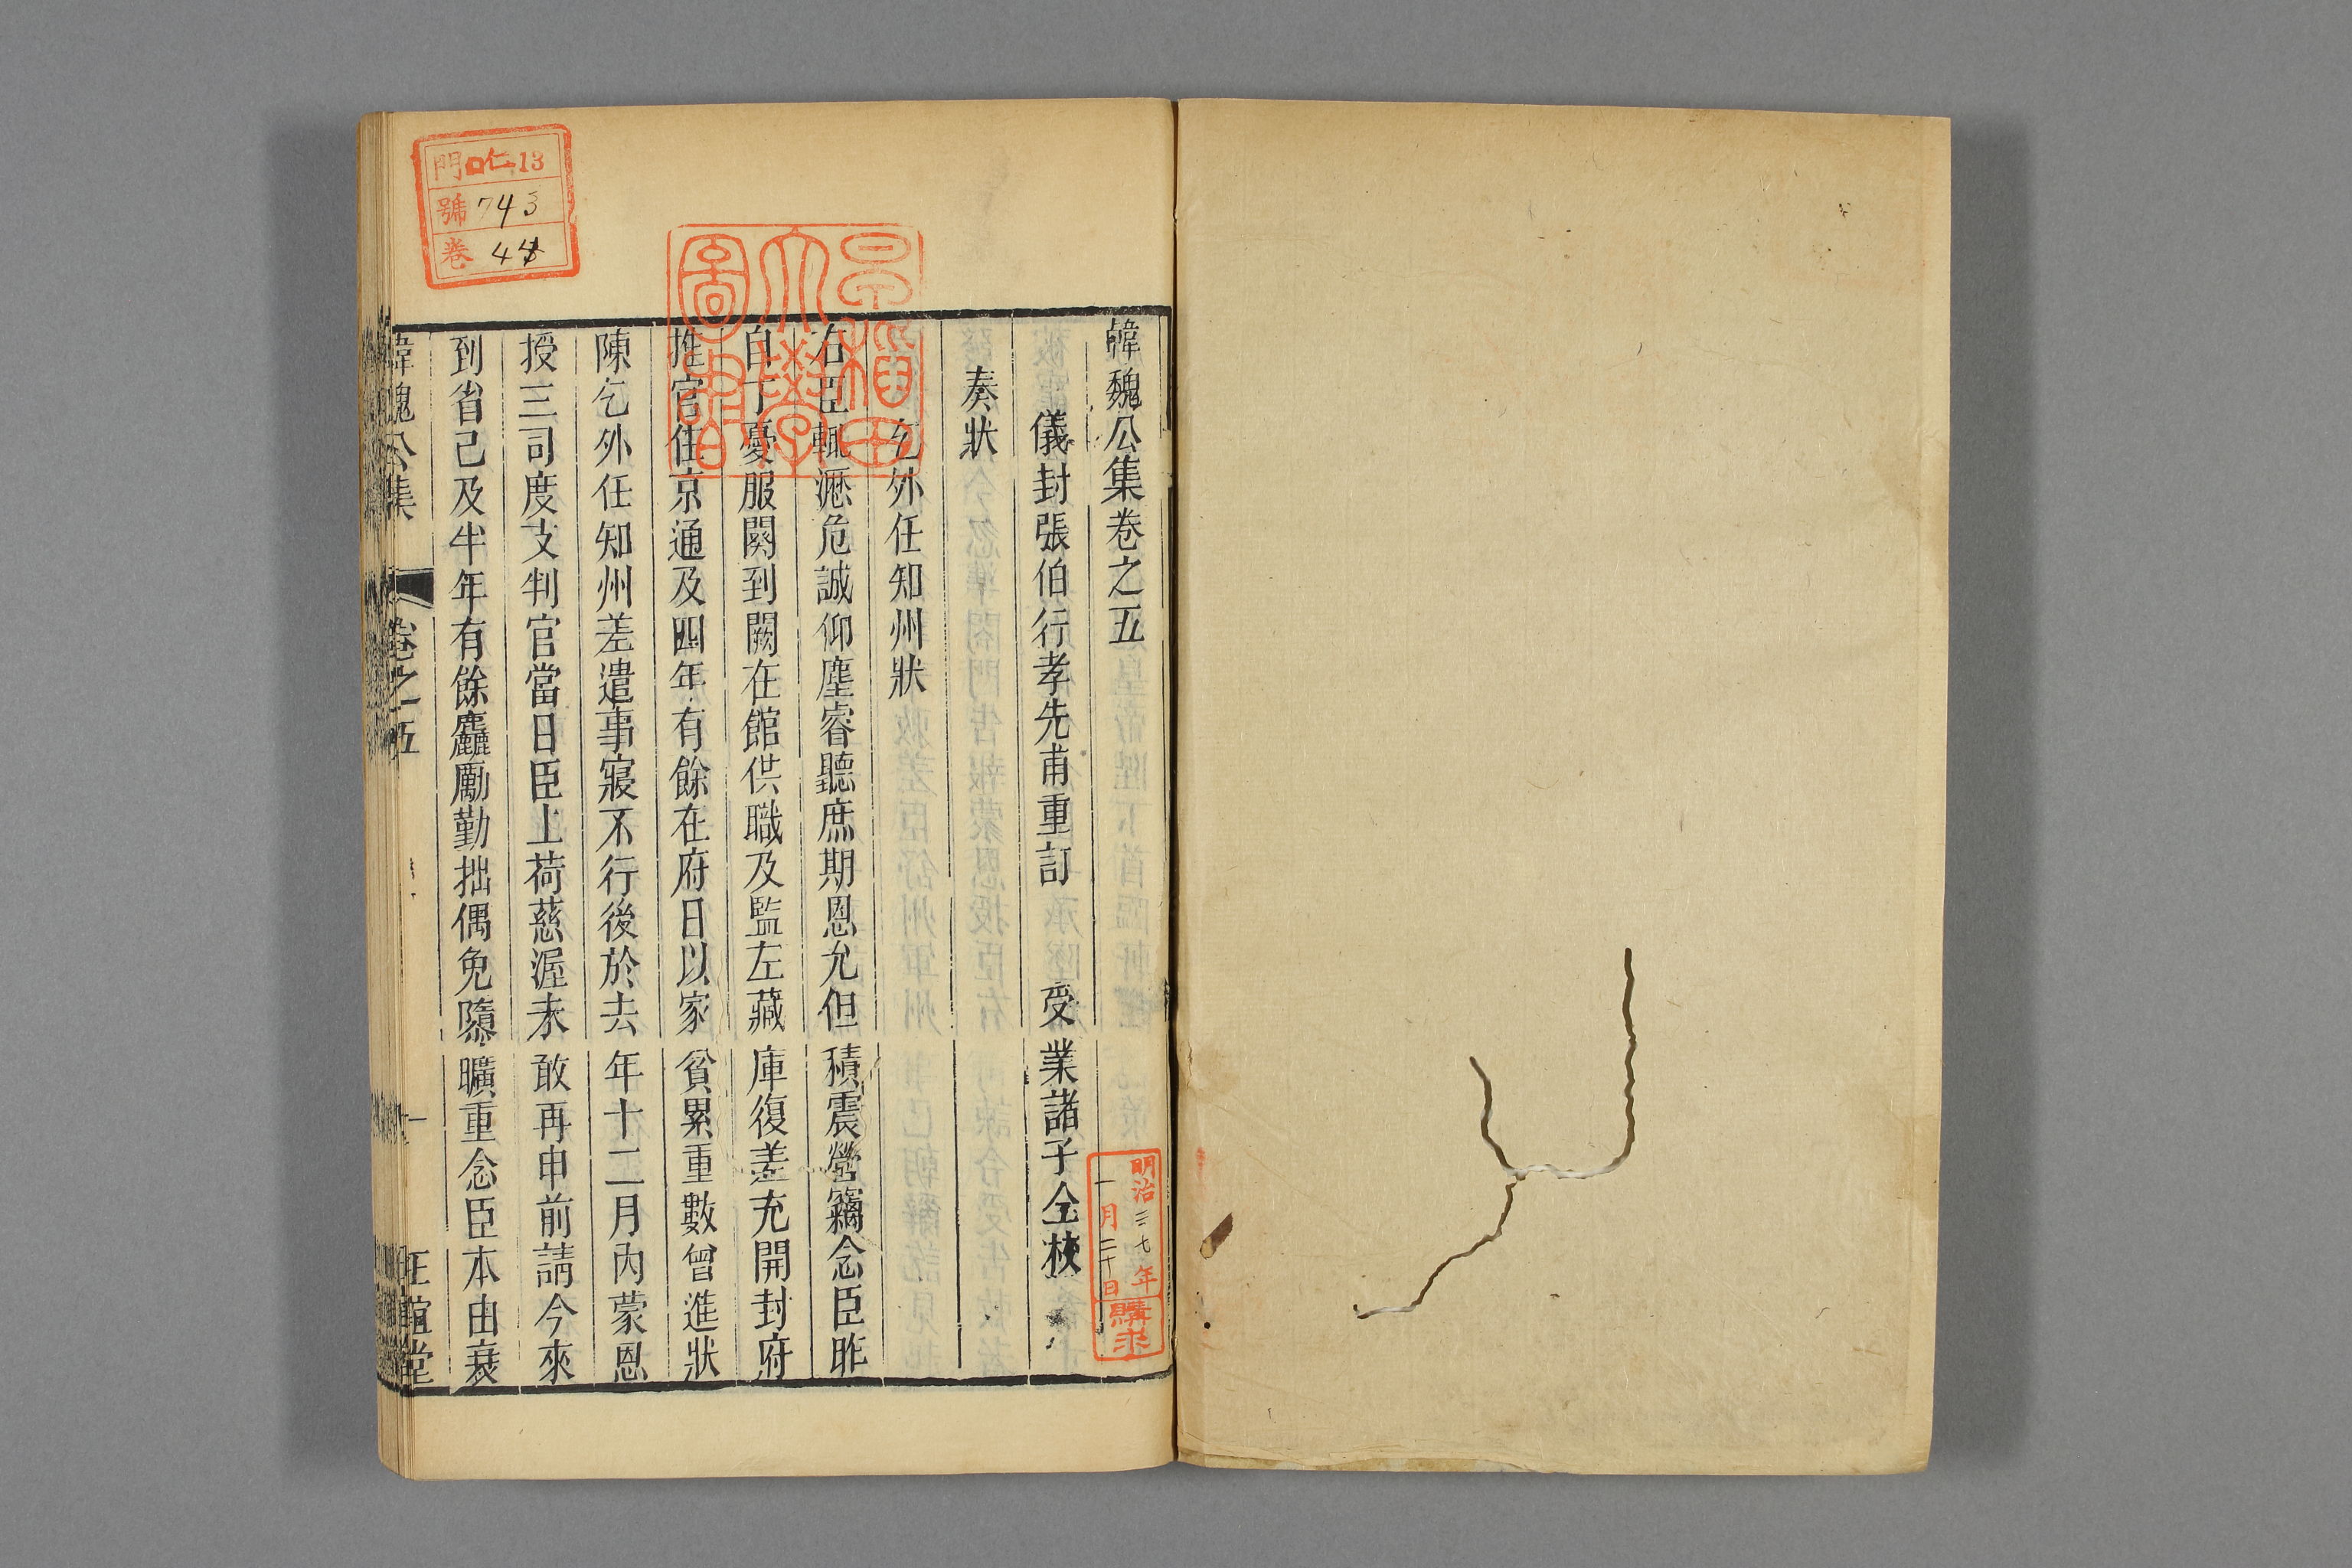 韓魏公集卷之五
儀封張伯行孝先甫重訂 受業諸子仝校
奏狀
乞外任知州狀
右臣輒瀝危誠仰塵睿聽庶期恩允但積震營竊念臣昨
自丁憂服闋到闕在館供職及監左藏庫復差充開封府
推官任京通及四年有餘在府日以家貧累重數曾進狀
陳乞外任知州差遣事寢不行後於去年十二月內蒙恩
授三司度支判官當日臣上荷慈渥未敢再申前請今來
到省已及半年有餘麤勵勤拙偶免隳曠重念臣本由衰
韓魏公集 卷之五 一 正誼堂
早稲田大學圖書
明治三七年
一月二十日
購求
門 ロ仁13
號 743
卷 44